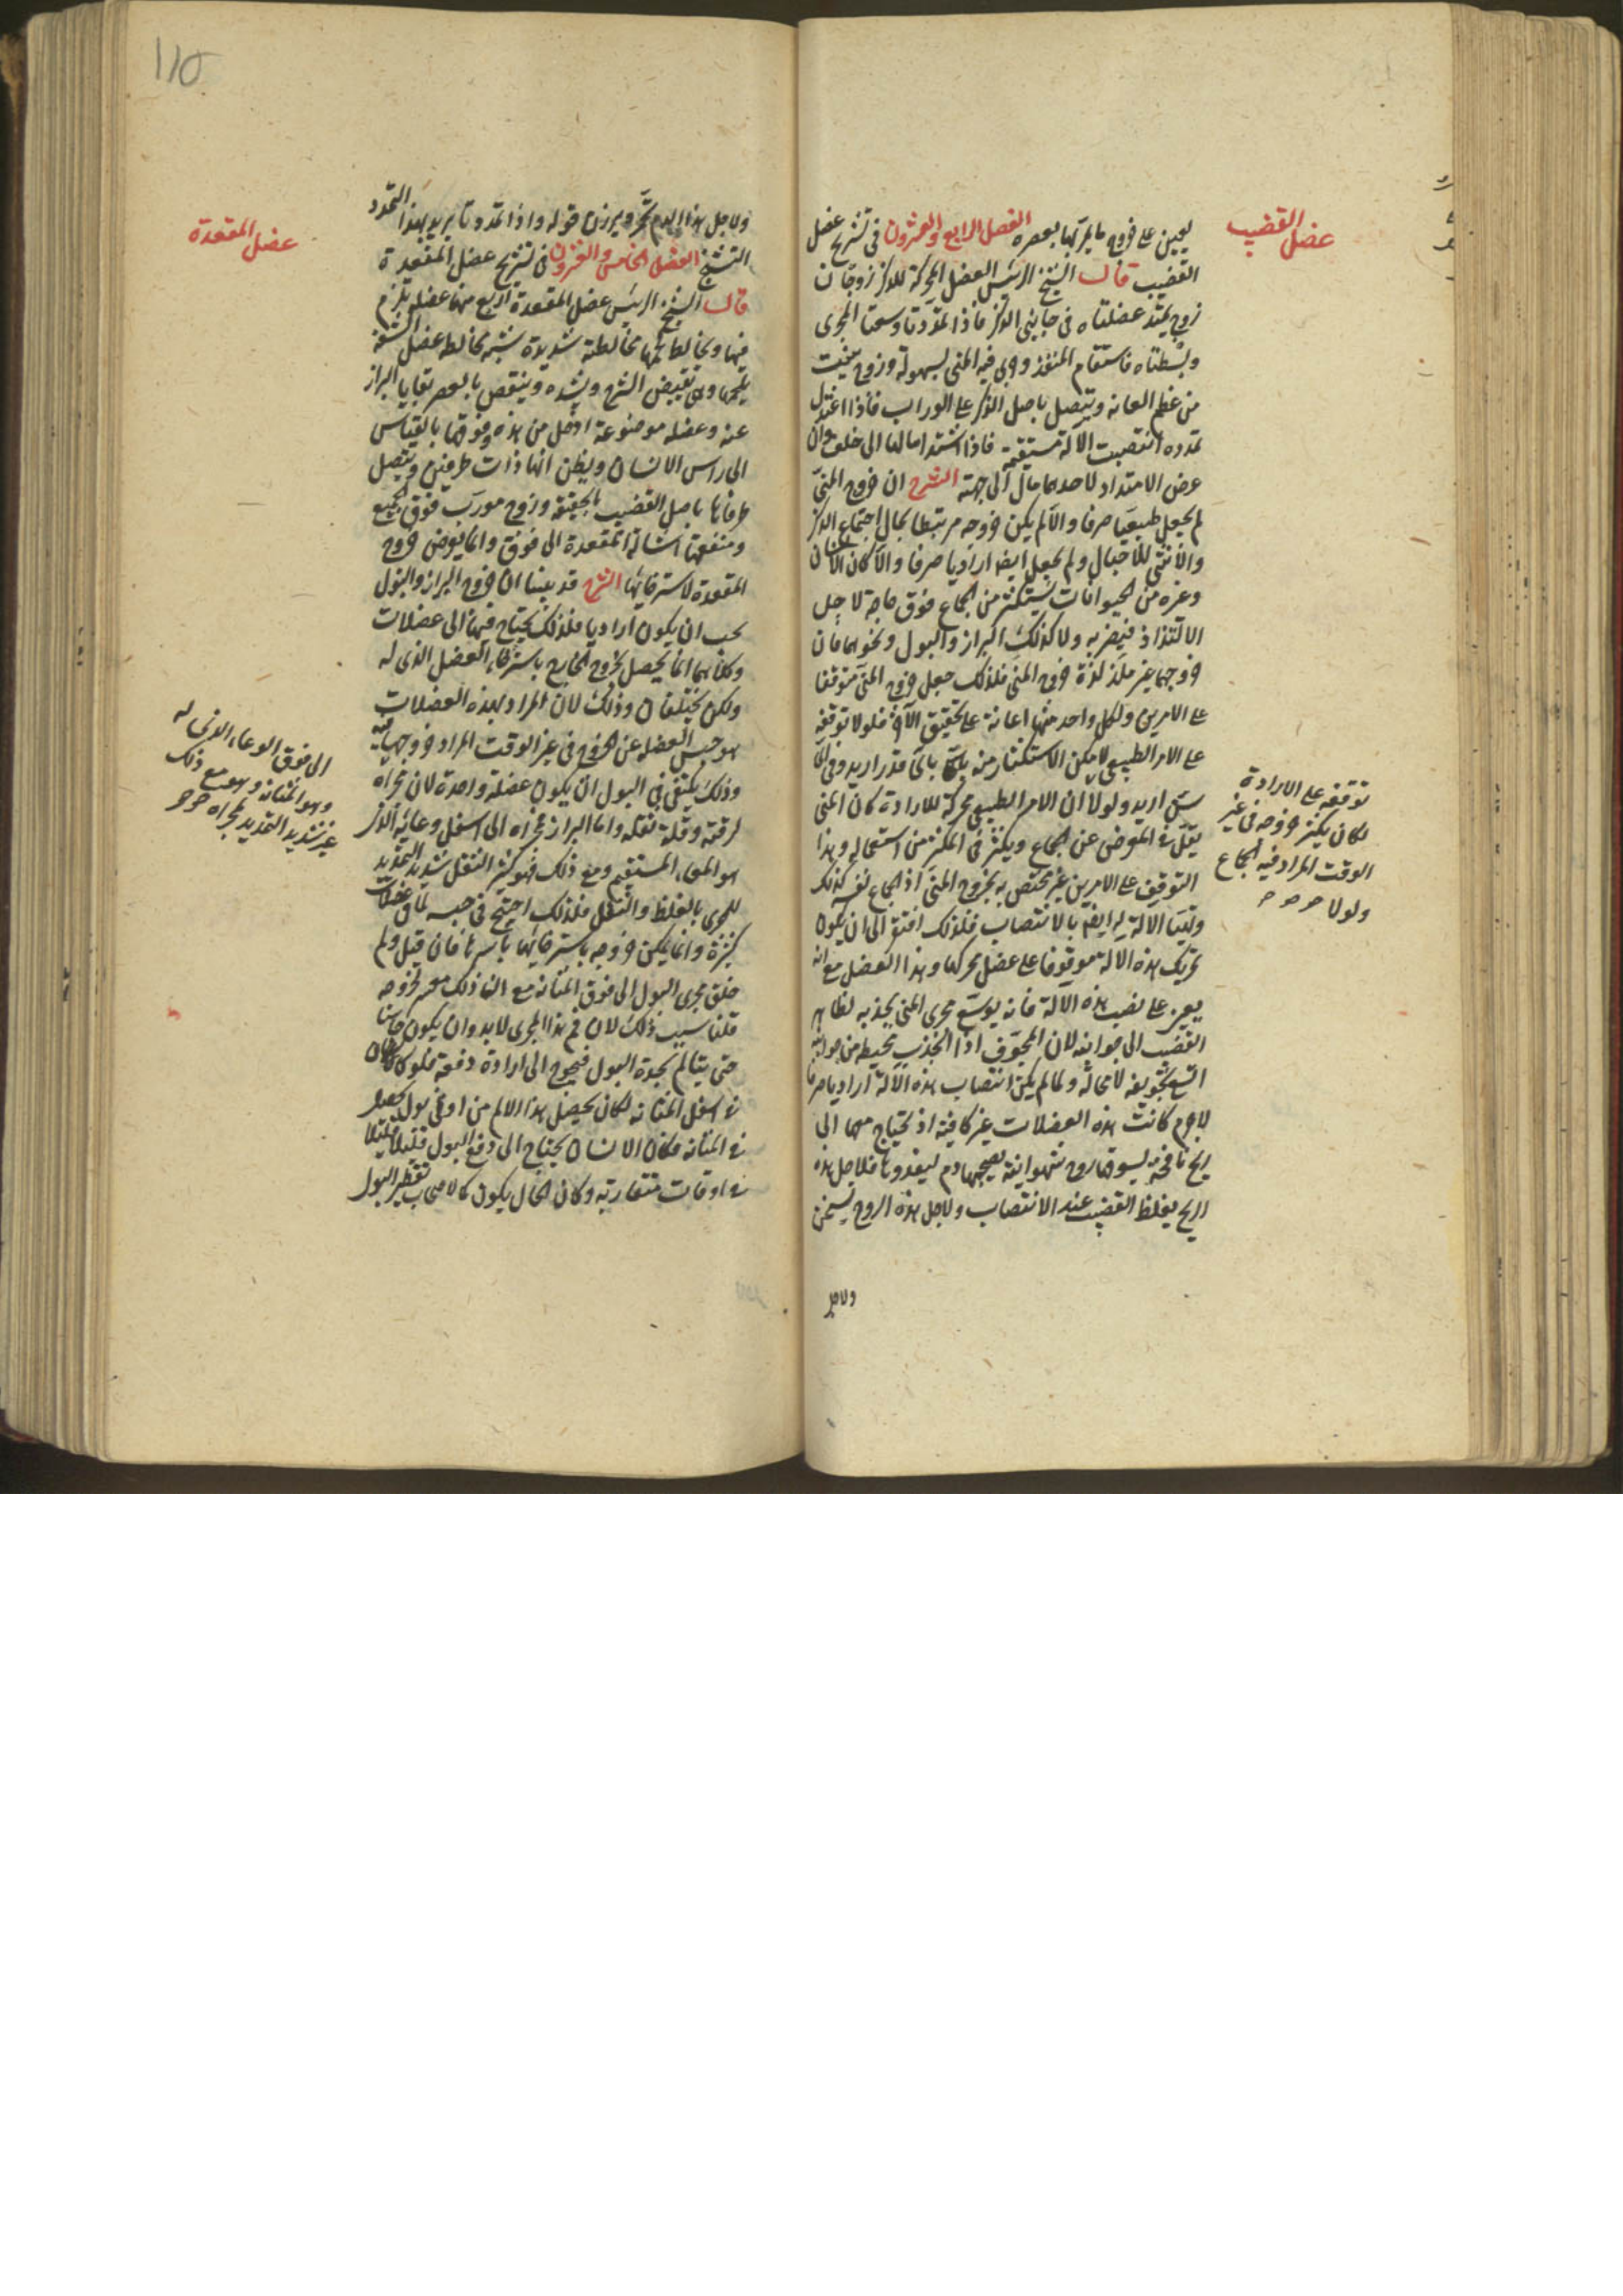 عضل القضيب
يعين على خروج ما يمر بها بعصره الفصل الرابع والعشرون في تشريح عضل
القضيب قال الشيخ الرئيس العضل المحركة للذكر زوجان
زوج يمتد عضلتاه في جانبي الذكر فاذا تمددتا وسعتا المجرى
وبسطتاه فاستقام المنفذ وجرى فيه المنى بسهولة وزوج ينبت
من عظم العانه ويتصل باصل الذكر على الوراب فاذا اعتدل
تمدده انتصبت الآلة مستقيمة فاذا اشتد امالها الى خلف وان
عرض الامتداد لاحدهما مال الى جهته الشرح ان خروج المنى
لم يجعل طبيعيا صرفا والا لم يكن خروجه مرتبطا بحال اجتماع الذكر
والانثى للاحبال ولم يجعل ايضا اراديا صرفا والا كان الانسان
وغيره من الحيوانات يستكثر من الجماع فوق حاجة لاجل
الالتذاذ فيضر به ولا كذلك البراز والبول ونحوهما فان
خروجها غير ملذ لذة خروج المنى فلذلك جعل خروج المنى متوقفا
على الامرين ولكل واحد منهما اعانة على تحقيق الآخر فلولا توقفه
على الامر الطبيعي لامكن الاستكثار منه باى قدر اريد وفى اى
شئ اريد ولولا ان الامر الطبيعى محركة للارادة كان المنى
يقل في المعرض عن الجماع ويكثر في المكثر من استعماله وهذا
التوقف على الامرين غير مختص به بخروج المنى اذ الجماع نفسه كذلك
وتهيا الآلة له ايضا بالانتصاب فلذلك افتقر الى ان يكون
تحريك هذه الالة موقوفا على عضل يحركها وهذا العضل مع انه
يعين على نصب هذه الآلة فانه يوسع مجرى المنى بجذبه لظاهر
القضيب الى جوانبه لان المجوف اذا انجذب محيطه من جوانبه
اتسع تجويفه لا محالة ولما لم يكن انتصاب هذه الآلة اراديا صرفا
لاجرم كانت هذه العضلات غير كافية اذ تحتاج معها الى
ريح نافخة يسوقها روح شهوانية يصحبها دم ليغذوها فلاجل هذه
الريح يغلظ القضيب عند الانتصاب ولاجل هذه الروح يسخن
ولاجل
توقفه على الارادة
لكان يكثر خروجه في غير
الوقت المراد فيه الجماع
ولولا
١١٥
عضل المقعدة
ولاجل هذا الدم يحمر قوله واذا تمددتا يريد بهذا التمدد
التشنج الفصل الخامس والعشرون في تشريح عضل المقعدة
قال الشيخ الرئيس عضل المقعدة اربع منها عضلة تلزم
فمها وتخالط لحمها مخالطة شديدة شبه مخالطة عضل الشفة
وهى تقبض الشرج وتشده وينقص بالعصر بقايا البراز
عنه وعضلة موضوعة ادخل من هذه وفوقها بالقياس
الى راس الانسان ويظن انها ذات طرفين ويتصل
طرفاها باصل القضيب بالحقيقة وزوج مورب فوق الجميع
ومنفعتها اشالة المقعدة الى فوق وانما يعرض خروج
المقعدة لاسترخائها الشرح قد بينا ان خروج البراز والبول
يجب ان يكون اراديا فلذلك يحتاج فيهما الى عضلات
وكلاهما انما يحصل بخروج الخارج باسترخاء العضل الذى له
ولكن يختلفان وذلك لان المراد بهذه العضلات
هو حبس الفضله عن الخروج فى غير الوقت المراد خروجها فيه
وذلك يكتفى في البول ان يكون عضلة واحدة لان مجراه
لرقته وقلة ثقله واما البراز فمجراه الى اسفل وعائه الذى
هو المعاء المستقيم ومع ذلك فهو كثير الثقل شديد التمديد
للمجرى بالغلظ والثقل فلذلك احتيج في حبسه الى عضلات
كثيرة وانما يمكن خروجه باسترخائها باسرها فان قيل ولم
خلق مجرى البول الى فوق المثانة مع ان ذلك معسر لخروجه
قلنا سبب ذلك لان فم هذا المجرى لابد وان يكون حاسا
حتى يتالم بحدة البول فيحوج الى ارادة دفعه فلو كان
في اسفل المثانه لكان يحصل هذا الالم من ادنى بول يحصل
في المثانه فكان الانسان يحتاج الى دفع البول قليلا قليلا
في اوقات متقاربة وكان الحال يكون كالاصحاب تقطير البول
الى فوق الوعاء الذى له
وهو المثانة وهو مع ذلك
غير شديد التمديد لمجراه